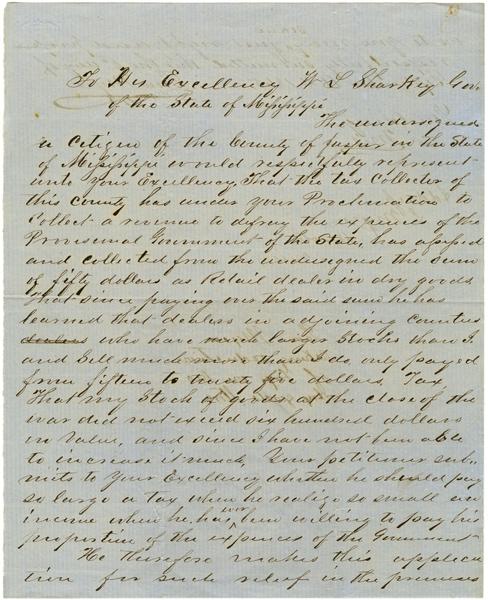 To His Excellency W L Sharkey Gov.
of the State of Mississippi
The undersigned
a citizen of the County of Jasper in the State
of Mississippi would respectfully represent
unto your Excellency, That the tax Collector of
this County has under your Proclamation to
Collect a revenue to defray the expences of the
Provisional Government of the State, has assessed
and collected from the undersigned the sum
of fifty dollars as Retail dealer in dry goods
That since paying over the said sum he has
learned that dealers in adjoining Counties
dealers who have much larger Stocks than I
and Sell much more than I do, only payed
from fifteen to twenty five dollars, Tax,
That my Stock of goods at the close of the
war did not exceed six hundred dollars
in Value, and since I have not been able
to increase it much, Your petitioner sub-
mits to Your Excellency whether he should pay
so large a tax when he realizes so small an
income when he has ever been willing to pay his
proportion of the expences of the Government
He therefore makes this applica
tion for such relief in the premises